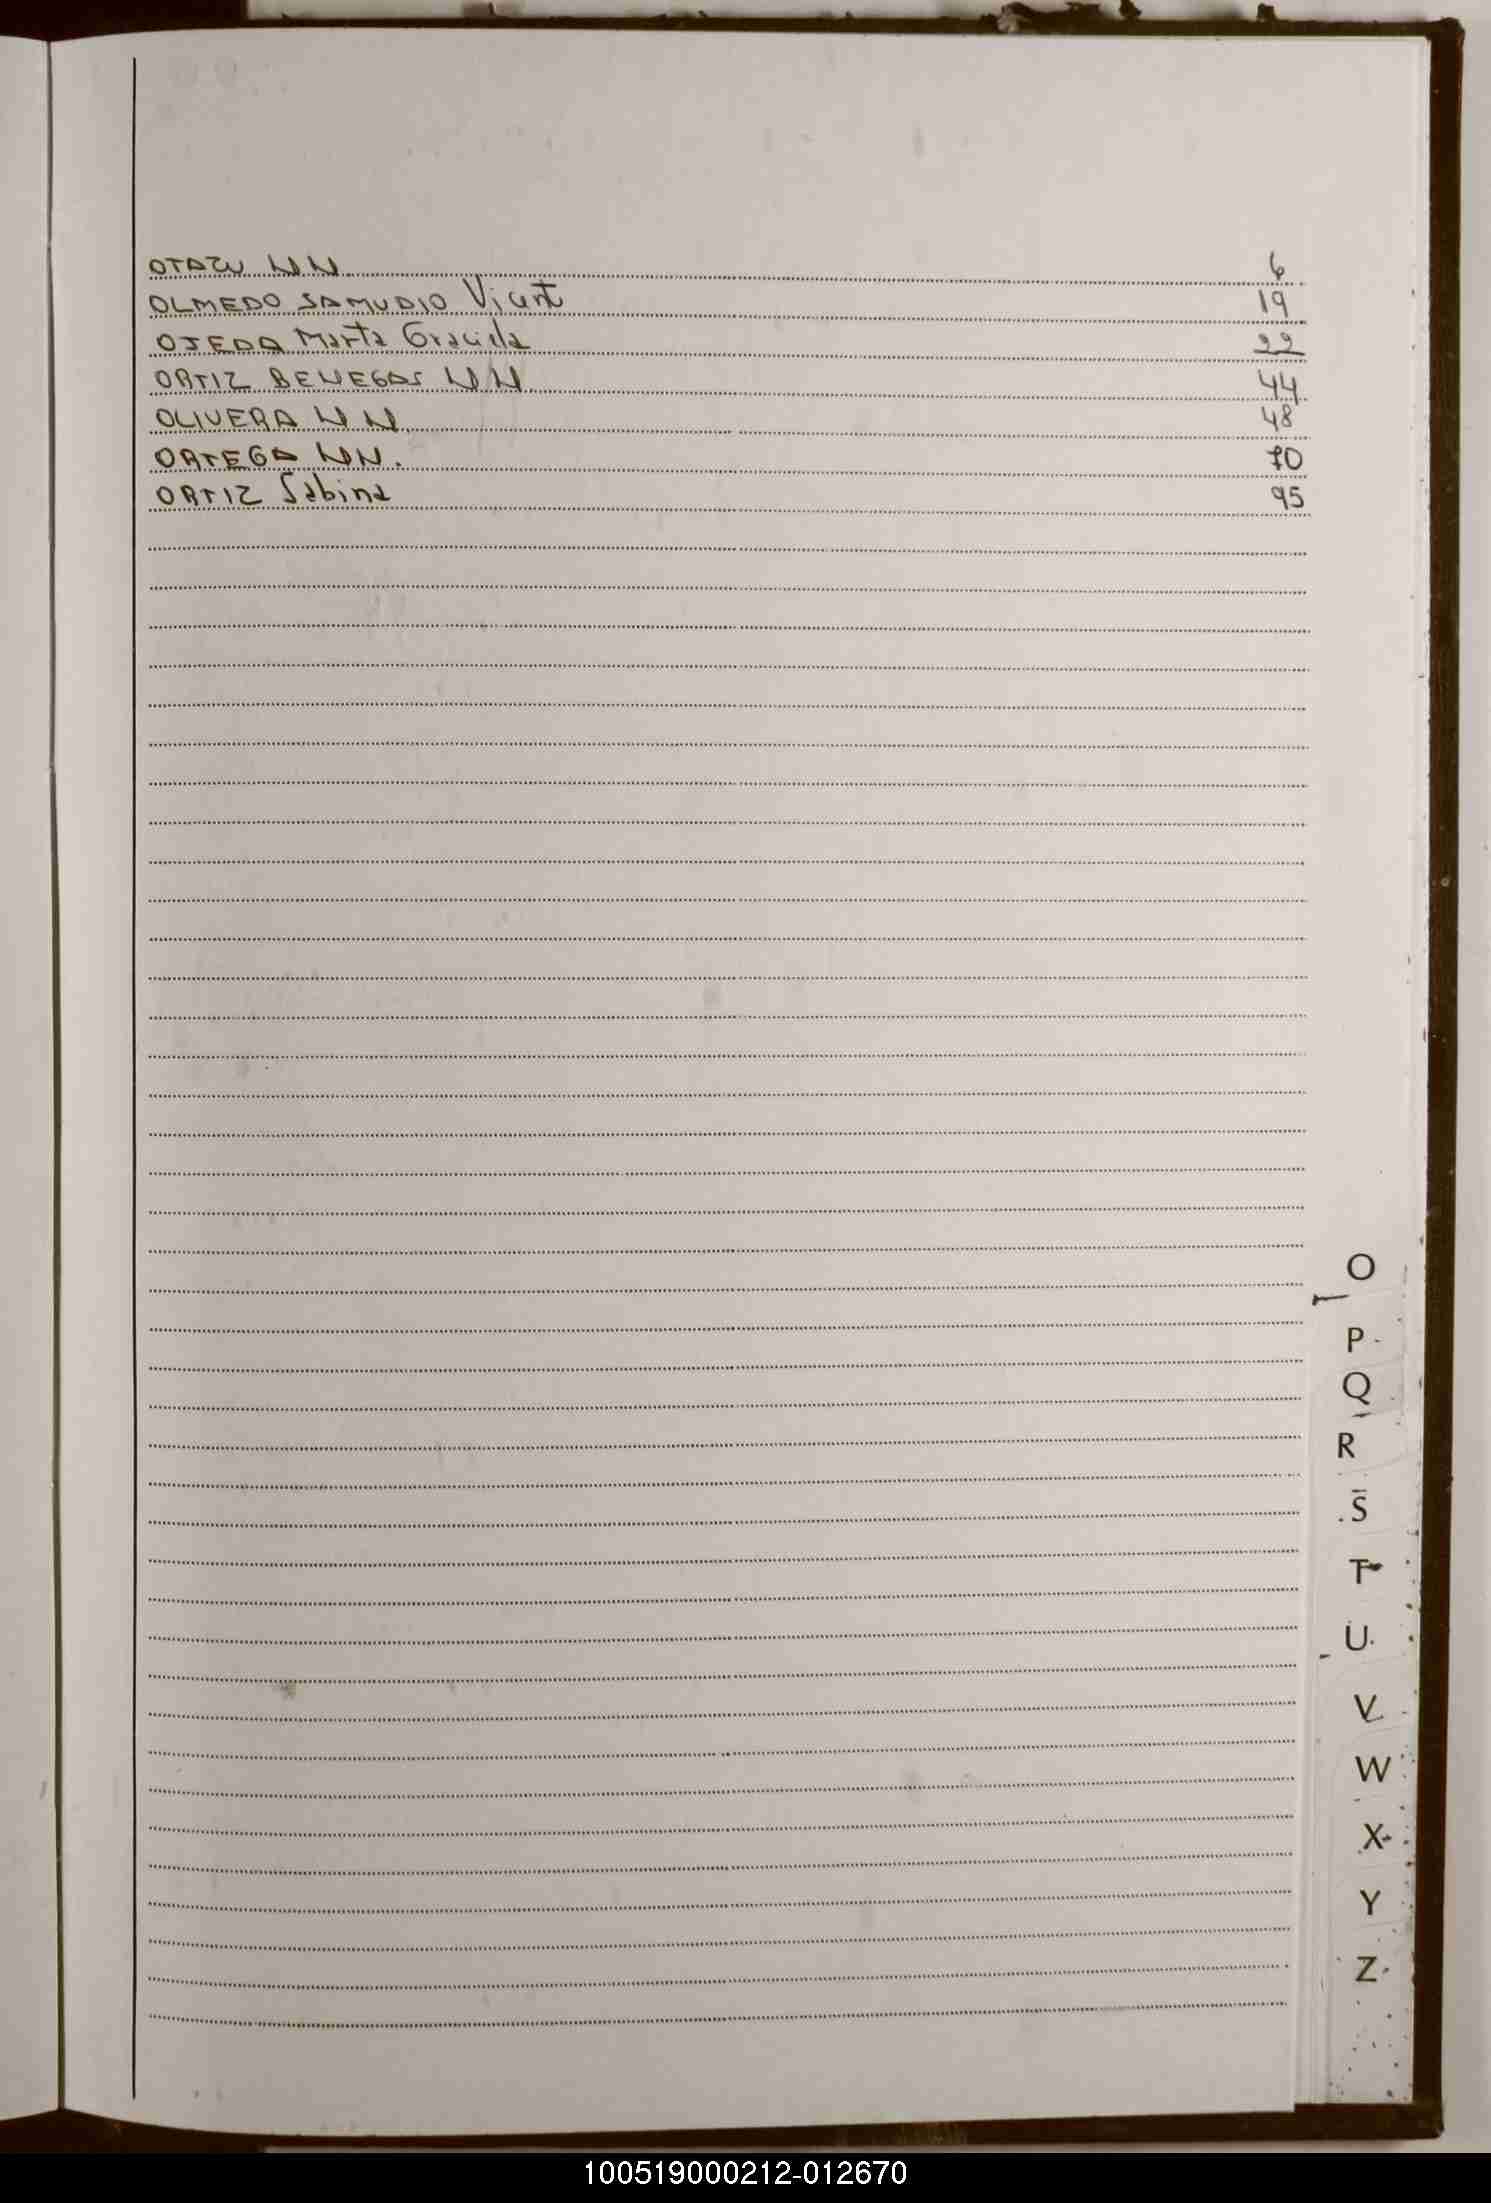 OTAZU NN 6
OLMEDO SAMUDIO Vicente 19
OJEDA Marta Graciela 22
ORTIZ BENEGAS NN 44
OLIVERA NN 48
ORTEGA NN. 70
ORTIZ Sabina 95
O
P
Q
R
S
T
U
V
W
X
Y
Z
100519000212-012670